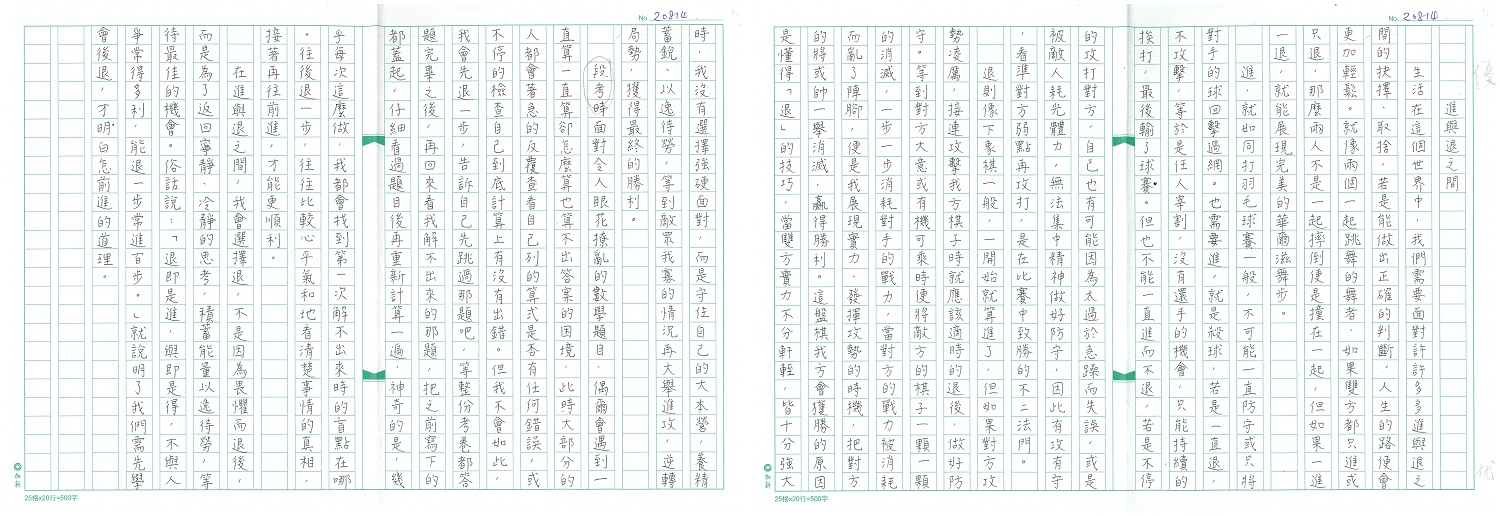 No. 20814
進與退之間
生活在這個世界中，我們需要面對許許多多進與退之
間的抉擇、取捨，若是能做出正確的判斷，人生的路便會
更加輕鬆。就像兩個一起跳舞的舞者，如果雙方都只進或
只退，那麼兩人不是一起摔倒便是撞在一起，但如果一進
一退，就能展現完美的華爾滋舞步。
進，就如同打羽毛球賽一般，不可能一直防守或只將
對手的球回擊過網。也需要進，就是殺球，若是一直退，
不攻擊，等於是任人宰割，沒有還手的機會，只能持續的
挨打，最後輸了球賽。但也不能一直進而不退，若是不停
的攻打對方，自己也有可能因為太過於急躁而失誤，或是
被敵人耗光體力，無法集中精神做好防守，因此有攻有守
，看準對方弱點再攻打，是在比賽中致勝的不二法門。
退則像下象棋一般，一開始就算進了，但如果對方攻
勢凌厲，接連攻擊我方棋子時就應該適時的退後，做好防
守。等到對方大意或有機可乘時便將敵方的棋子一顆一顆
的消滅，一步一步消耗對手的戰力，當對方的戰力被消耗
而亂了陣腳，便是我展現實力、發揮攻勢的時機，把對方
的將或帥一舉消滅，贏得勝利。這盤棋我方會獲勝的原因
是懂得「退」的技巧，當雙方實力不分軒輊，皆十分強大
25格x20行=500字
No. 20814
時，我沒有選擇強硬面對，而是守住自己的大本營，養精
蓄銳、以逸待勞，等到敵眾我寡的情況再大舉進攻，逆轉
局勢，獲得最終的勝利。
段考時面對令人眼花撩亂的數學題目，偶爾會遇到一
直算一直算卻怎麼算也算不出答案的困境，此時大部分的
人都會著急的反覆查看自己列的算式是否有任何錯誤，或
不停的檢查自己到底計算上有沒有出錯。但我不會如此，
我會先退一步，告訴自己先跳過那題吧，等整份考卷都答
題完畢之後，再回來看我解不出來的那題，把之前寫下的
都蓋起，仔細看過題目後再重新計算一遍，神奇的是，幾
乎每次這麼做，我都會找到第一次解不出來時的盲點在哪
。往後退一步，往往比較心平氣和地看清楚事情的真相，
接著再往前進，才能更順利。
在進與退之間，我會選擇退，不是因為畏懼而退後，
而是為了返回寧靜、冷靜的思考，積蓄能量以逸待勞，等
待最佳的機會。俗話說：「退即是進，與即是得，不與人
爭常得多利，能退一步常進百步。」就說明了我們需先學
會後退，才明白怎前進的道理。
25格x20行=500字